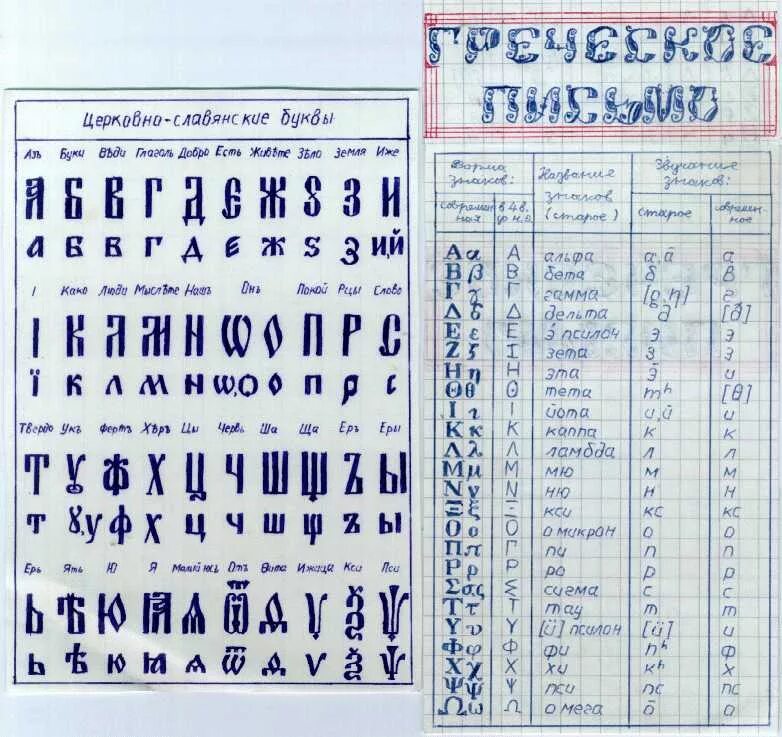 Церковно-славянские буквы
Азъ Буки Вѣди Глаголь Добро Есть Живѣте Зѣло Земля Иже
А Б В Г Д Є Ж Ѕ З И
а б в г д є ж ѕ з и,й
І Како Люди Мыслѣте Нашъ Онъ Покой Рцы Слово
І К Л М Н Ѡ О П Р С
ї к л м н ѡ,о о п р с
Твердо Укъ Фертъ Хѣръ Цы Червь Ша Ща Еръ Еры
Т Ꙋ Ф Х Ц Ч Ш Щ Ъ Ы
т ꙋ,у ф х ц ч ш щ ъ ы
Ерь Ять Ю Я Малый юсъ Отъ Ѳита Ижица Кси Пси
Ь Ѣ Ю Ꙗ Ѧ Ѿ Ѳ Ѵ Ѯ Ѱ
ь ѣ ю ꙗ ѧ ѿ ѳ ѵ ѯ ѱ
ГРЕЧЕСКОЕ
ПИСЬМО
Форма знаков: Название знаков (старое) Звучание знаков:
современная в 4 в. до н.э. старое современное
Α α Α альфа а,а̄ а
Β β Β бета б в
Γ γ Γ гамма [g,η] г
Δ δ Δ дельта д [ð]
Ε ε Ε э псилон э э
Ζ ζ Ι зета з з
Η η Η эта э̄ и
Θ θ Θ тета тʰ [θ]
Ι ι Ι йота и,й и
Κ κ Κ каппа к к
Λ λ Λ ламбда л л
Μ μ Μ мю м м
Ν ν Ν ню н н
Ξ ξ Ξ кси кс кс
Ο ο Ο о микрон о о
Π π Γ пи п п
Ρ ρ Ρ ро р р
Σ σς Σ сигма с с
Τ τ Τ тау т т
Υ υ Υ [ü] псилон [ü] и
Φ φ Φ фи пʰ ф
Χ χ Χ хи кʰ х
Ψ ψ Ψ пси пс пс
Ω ω Ω о мега о̄ о